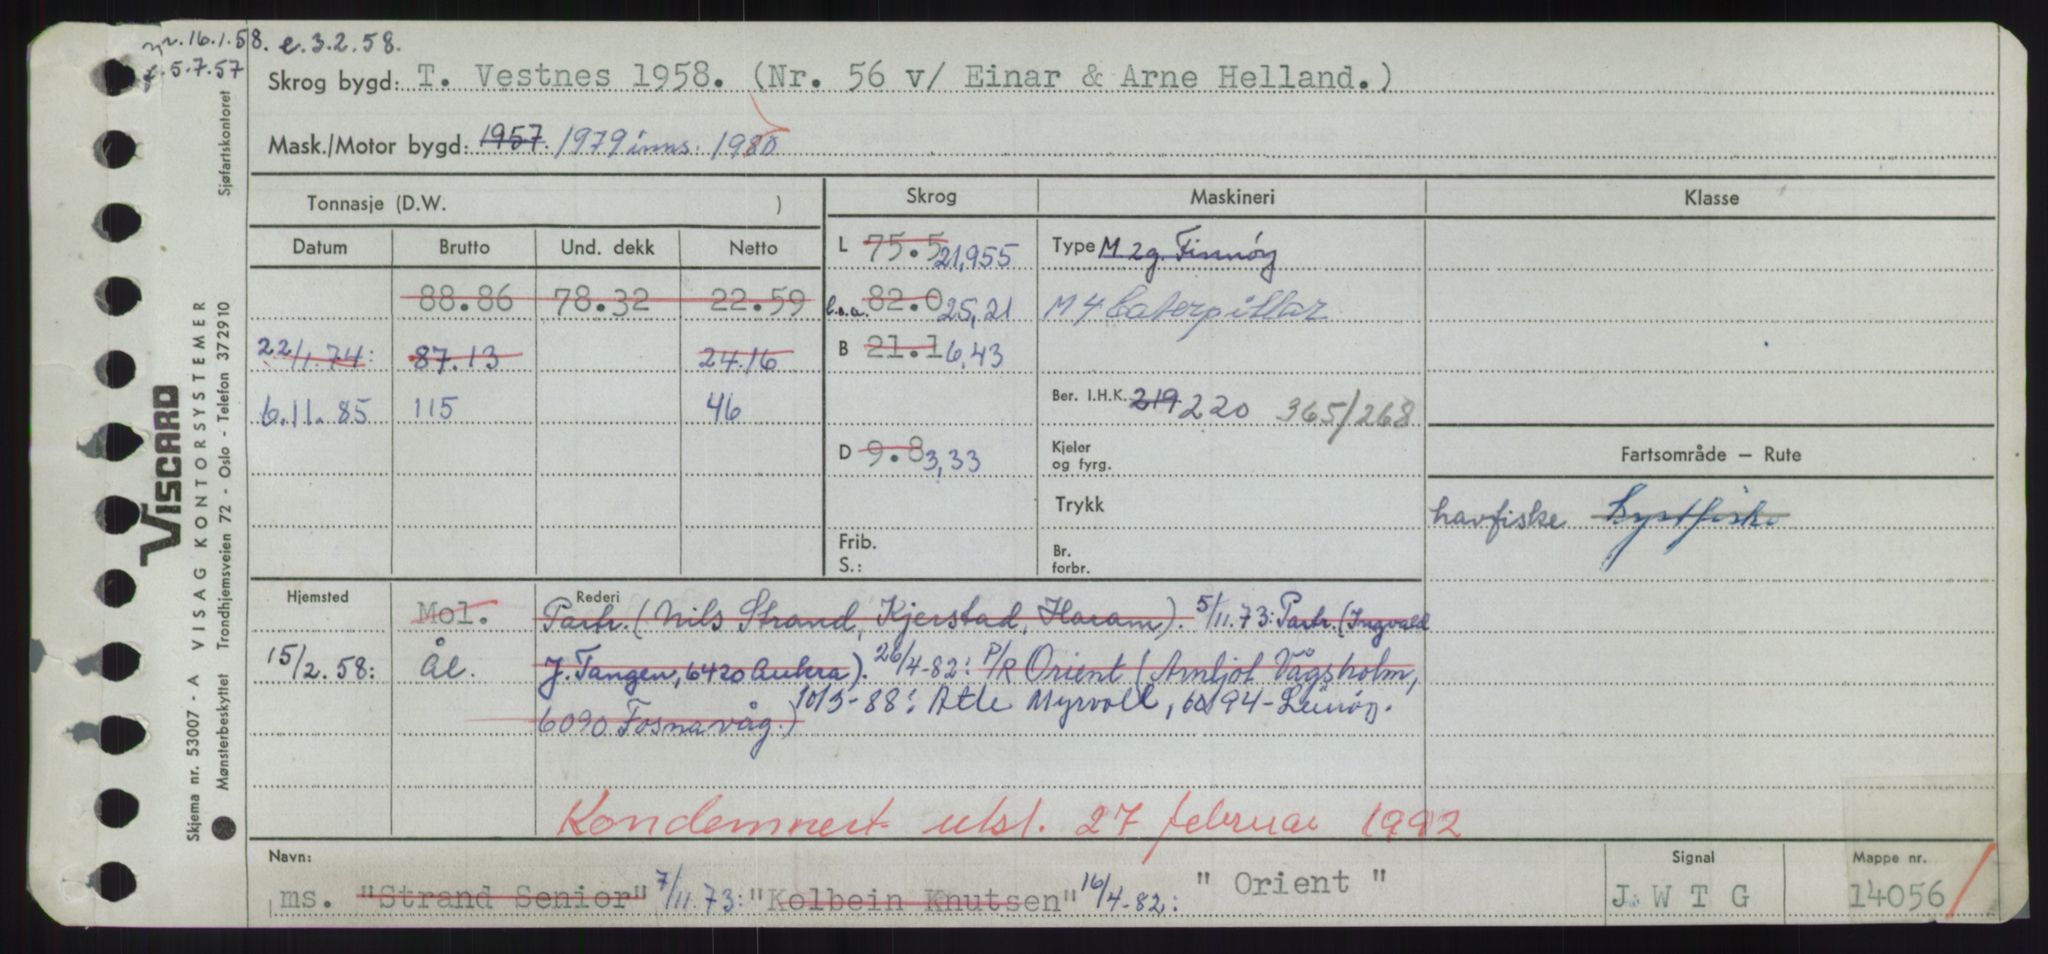 nr. 16.1.58. e. 3.2.58.
f. 5.7.57
Skrog bygd: T. Vestnes 1958. (Nr. 56 v/ Einar & Arne Helland.)
Mask./Motor bygd: 1957. 1979 inns. 1980
Tonnasje (D.W. )
Skrog Maskineri Klasse
Datum Brutto Und. dekk Netto
L 75.5 21,955 Type M 2g. Finnøy
88.86 78.32 22.59 l.o.a. 82.0 25,21 M 4 Caterpillar
22/1.74: 87.13 24.16 B 21.1 6,43
6.11.85 115 46 Ber. I.H.K. 219 220 365/268
D 9.8 3,33 Kjeler og fyrg.
Fartsområde – Rute
Trykk
havfiske Kystfiske
Frib.
S.:
Br. forbr.
Hjemsted Rederi
Mol. Partr. (Nils Strand, Kjerstad, Haram). 5/11.73: Partr. (Ingvald
15/2.58: Ål. J. Tangen, 6420 Aukra). 26/4-82: P/R Orient (Arnljot Vågsholm,
6090 Fosnavåg.) 10/5-88: Atle Myrvoll, 6094 - Leinøy.
Kondemnert utsl. 27 februar 1992
Navn: Signal Mappe nr.
ms. "Strand Senior" 7/11.73: "Kolbein Knutsen" 16/4-82: "Orient" J W T G 14056
VISCARD
Skjema nr. 53007 - A VISAG KONTORSYSTEMER
Mønsterbeskyttet Trondhjemsveien 72 - Oslo - Telefon 372910 Sjøfartskontoret